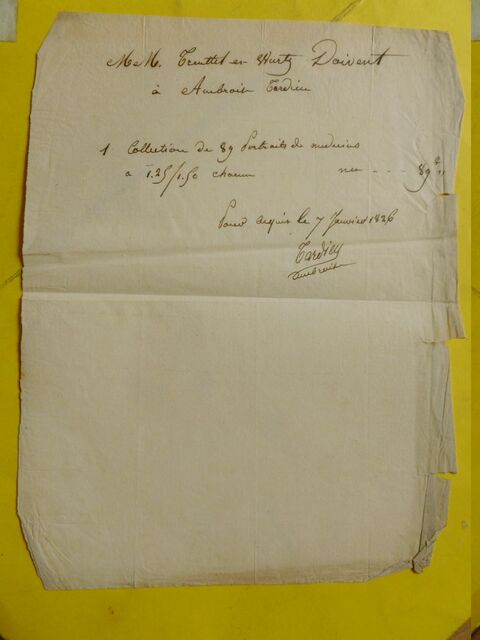 M M. Treuttel en Wurtz Doivent
à Ambroise Tardieu
1 Collection de 89 Portraits de medecins
a 1.25/1.50 chacun net - - - 89 "
Pour acquit le 7 Janvier 1826
Tardieu
Ambroise